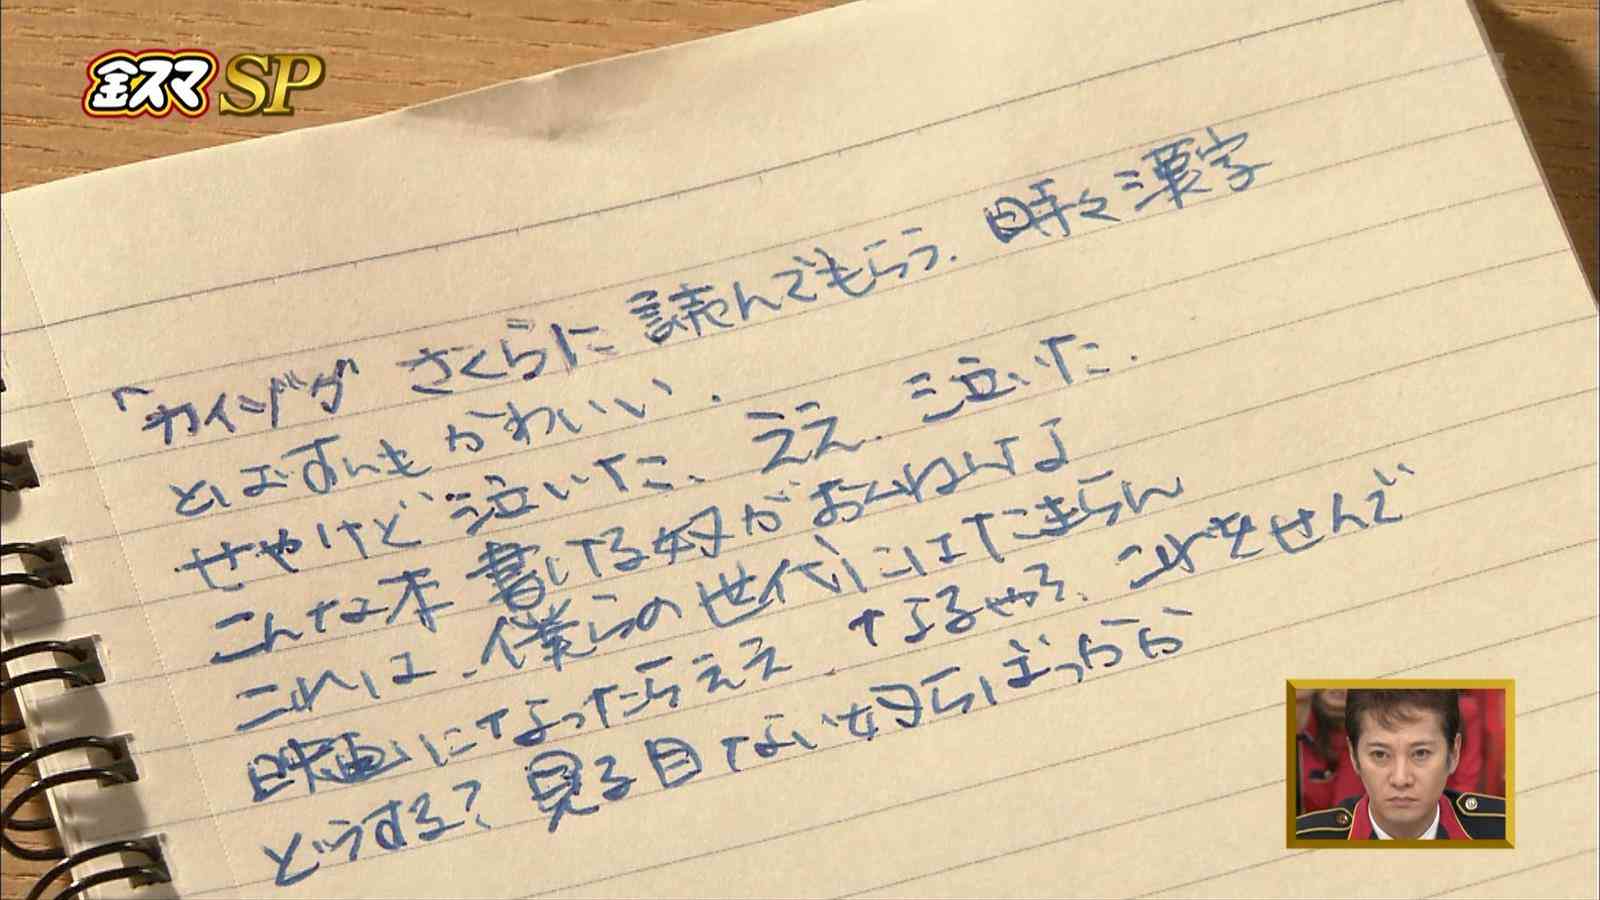 金スマSP
「カインド" さくらに 読んでもらう. 時々漢字
とばすんも かわいい.
せやけど 泣いた. ええ. 泣いた.
こんな本 書ける奴が おんねんよ
これは. 僕らの世代にはたまらん
映画になったらええ. なるやろ. これをせんで
どうする? 見る目ない奴らばっかか